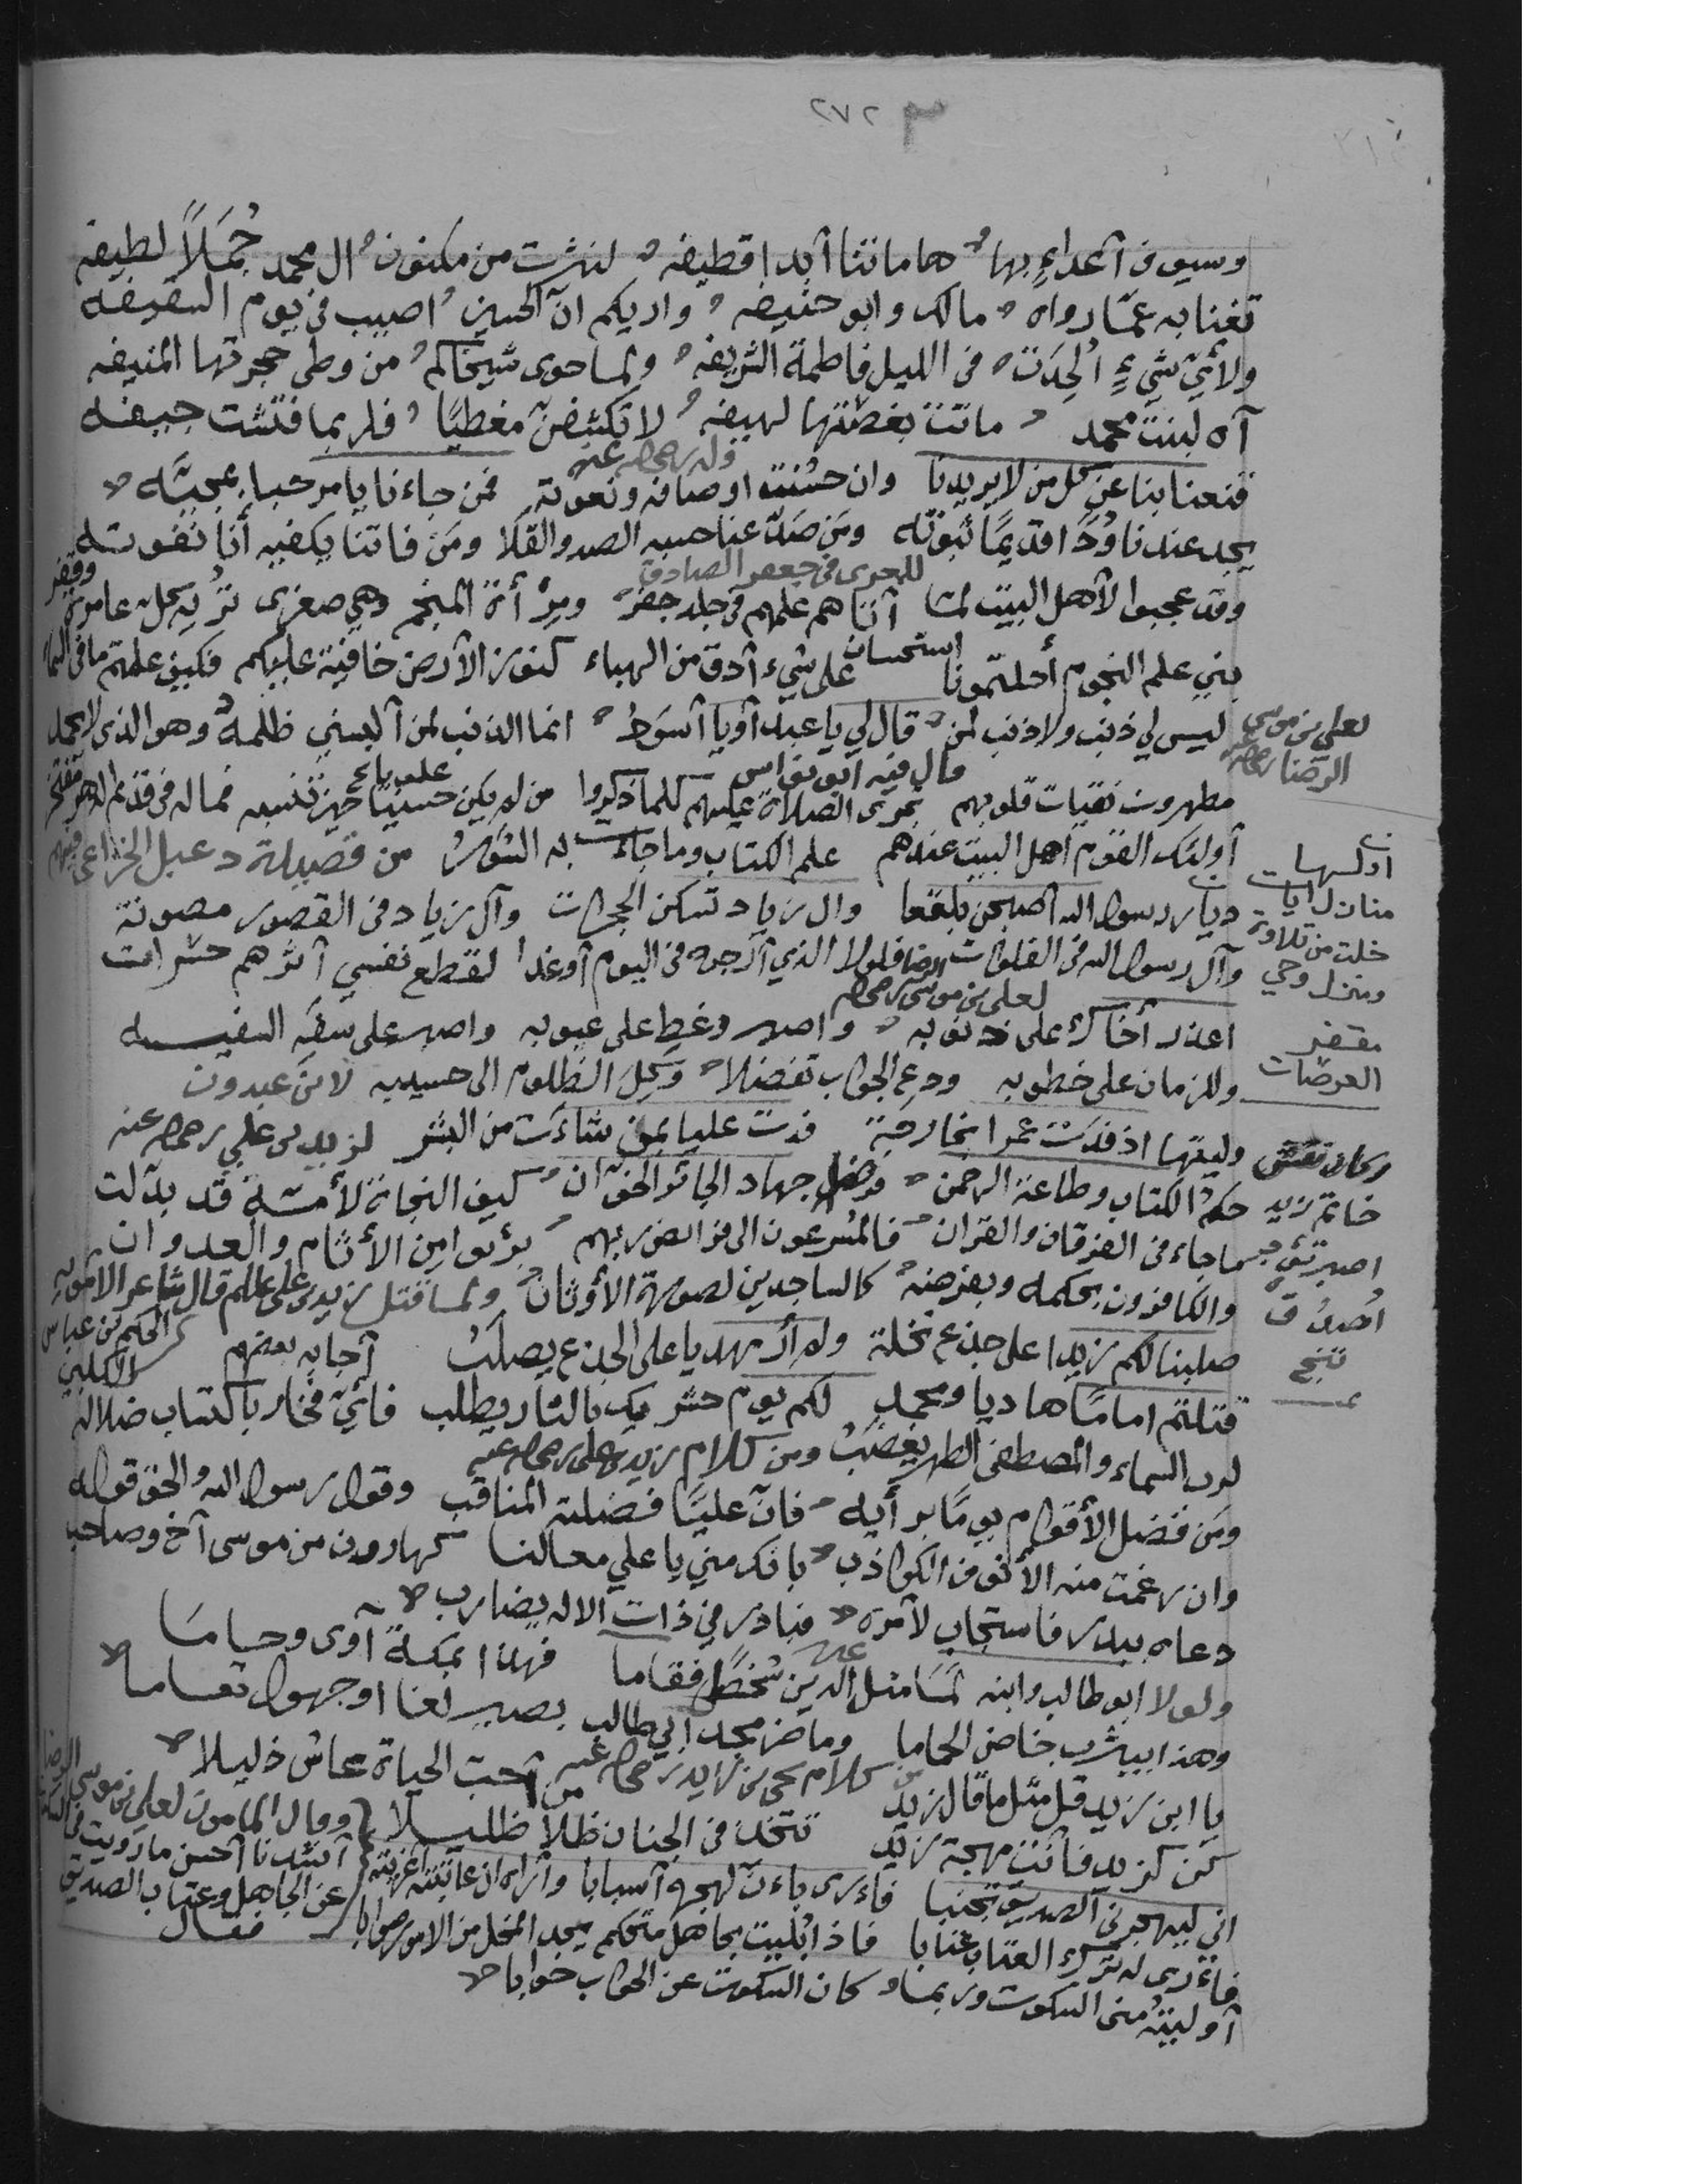 ٢٧٢
وسيوف أعداءٍ بها هاماتنا أبدا قطيفه لنشرت من مكنون ال محمد جُمَلاً لطيفه
تغنا به عمّا رواه مالك وابو حنيفه واريكم انّ الحسين اصيب في يوم السقيفه
ولأيّ شيءٍ أُلحِدَت في الليل فاطمة الشريفه ولما حوى شيخاكم من وطى حجرتها المنيفه
آه لبنت محمد ماتت بغصتها لهيفه لا تكشفن مغطيًا فلربما فتشت جيفه
وله رضي الله عنه
قنعنا بنا عن كل من لا يريدنا وان حسنت اوصافه ونعوته فمن جاءنا يا مرحبا بمجيئه
يجد عندنا وُدًّا قديمًا ثبوته ومَن صَدّ عنا حسبه الصد والقلا ومَن فاتنا يكفيه أنا نفوته
للمعري في جعفر الصادق
وقد عجبوا لأهل البيت لما أتاهم علمهم في جلد جفر ومِرْأة المنجم وهي صغرى تُرِيه كل عامرة وقفر
استحسان
بني علم النجوم أحلتمونا على شيء أدق من الهباء كنوز الأرض خافية عليكم فكيف علمتم ما في السماء
لعلي بن موسى الرضا
ليس لي ذنب ولا ذنب لمن قال لي يا عبد أو يا أسود انما الذنب لمن ألبسني ظلمة وهو الذي لا يحمد
وقال فيه ابو نواس
مطهرون نقيات قلوبهم تجرى الصلاة عليهم كلما ذكروا من لم يكن حسينيًا حين تنسبه فما له في قديم الدهر مفتخر
أولئك القوم أهل البيت عندهم علم الكتاب وما جاءت به السور من قصيدة دعبل الخزاعي فيهم
اولها
منازل ايات
خلت من تلاوة
ومنزل وحي
مقفر
العرصات
ديار رسول الله أصبحن بلقعا وال زياد تسكن الحجرات وآل زياد في القصور مصونة
وآل رسول الله في الفلوات فلولا الذي أرجوه في اليوم أو غدا لقطع نفسي أثرهم حسرات
لعلي بن موسى الرضا
اعذر أخاك على ذنوبه واصبر وغط على عيوبه واصبر على سفه السفيه
وللزمان على خطوبه ودع الجواب تفضلا وكل الظلوم الى حسيبه لابن عبدون
وليتها اذ فدت عمرا بخارجة فدت عليا بمن شاءت من البشر لزيد بن علي رضي الله عنه
وكان نقش
خاتم زيد
اصبر تؤجر
اصدق
تنج
حكم الكتاب وطاعة الرحمن فرضا جهاد الجائر الخوان كيف النجاة لأمة قد بدلت
ما جاء في الفرقان والقران فالمسرعون الى فرائض ربهم برئوا من الأثام والعدوان
والكافرون بحكمه وبفرضه كالساجدين لصورة الأوثان ولما قتل زيد بن علي قال شاعر الاموية
الحكم بن عباس الكلبي
صلبنا لكم زيدا على جذع نخلة ولم أر مهديا على الجذع يصلب أجابه بعضهم
قتلتم اماما هاديا ومحمد لكم يوم حشر بك بالثار يطلب فأيّ فخار باكتساب ضلالة
لرب السماء والمصطفى الطهر يغضب ومن كلام زيد بن علي رضي الله عنه
ومَن فضل الأقوام يومًا برأيه فان عليًا فضلته المناقب وقول رسول الله والحق قوله
وان رغمت منه الأنوف الكواذب بانك مني يا علي معالنا كهارون من موسى أخ وصاحب
دعاه ببدر فاستجاب لأمره فبادر في ذات الاله يضارب
ولولا ابو طالب وابنه لما مثل الدين شخصًا فقاما فهذا بمكة آوى وحاما
وهذا بيثرب خاض الحماما وما ضر مجد ابي طالب بصير لغا او جهول تعاما
من كلام يحيى بن زيد رضي الله عنه
يا ابن زيد قل مثل ما قال زيد من أحب الحياة عاش ذليلا
كن كزيد فأنت مهجة زيد تتخذ في الجنان ظلا ظليلا
وقال المامون لعلي بن موسى الرضا
أنشدنا أحسن ما رويت في السكوت
عن الجاهل وعتاب الصديق
فقال
اني ليهجرني الصديق تجنبا فأرى بأن لهجره أسبابا وأراه ان عاتبته أغريته
فأرى له ترك العتاب عتابا فاذا بُليت بجاهل متحكم يجد المحال من الامور صوابا
أوليته مني السكوت وربما كان السكوت عن الجواب جوابا